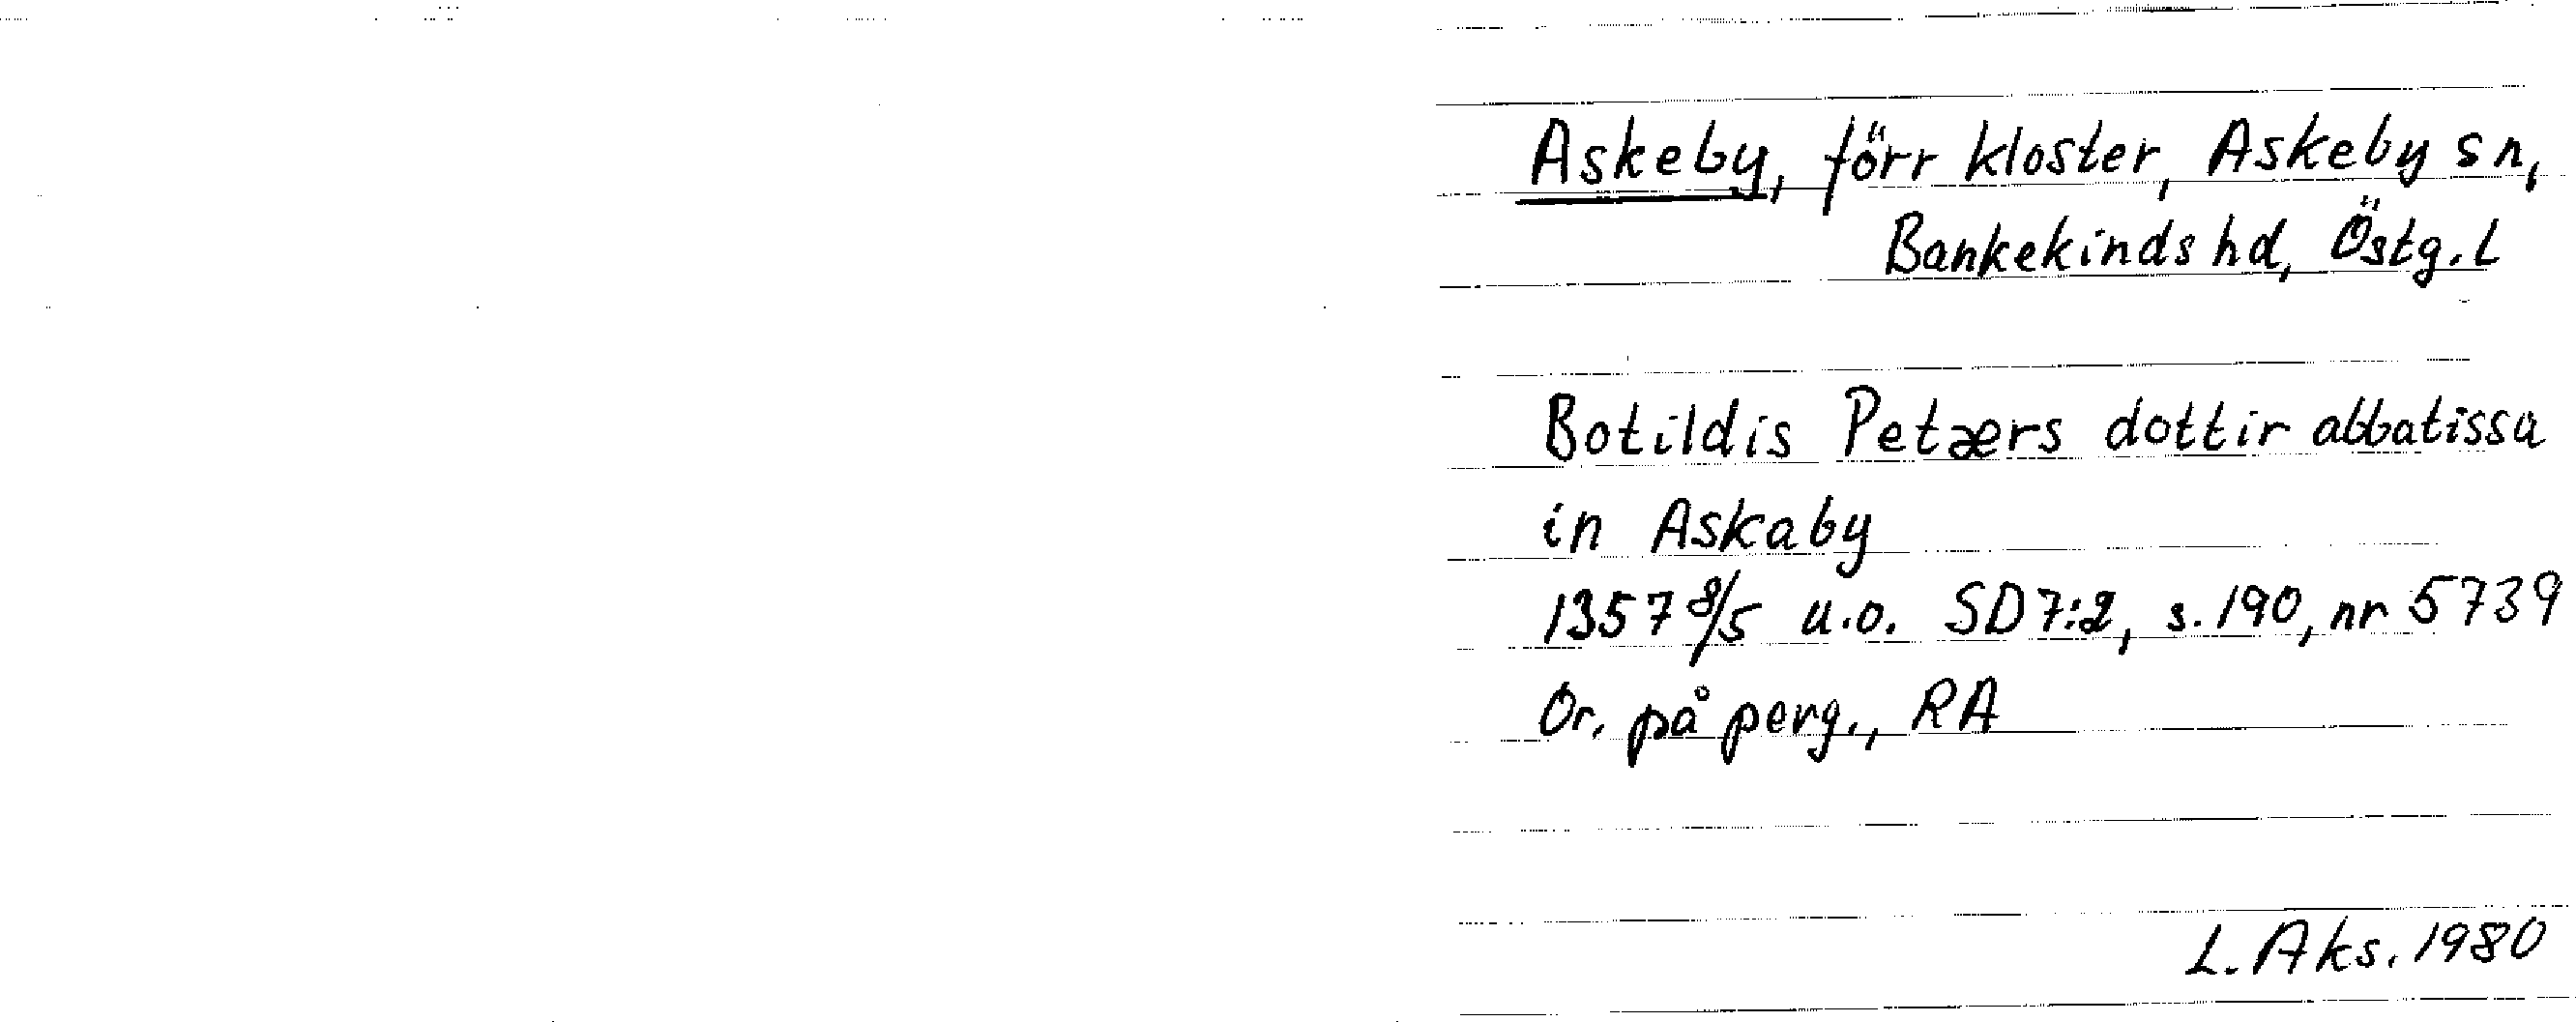 Askeby, förr kloster, Askeby sn,
Bankekinds hd, Östg. L
Botildis Petærs dottir abbatissa
in Askaby
1357 8/5 u.o. SD 7:2, s. 190, nr 5739
Or. på perg., RA
L. Aks. 1980